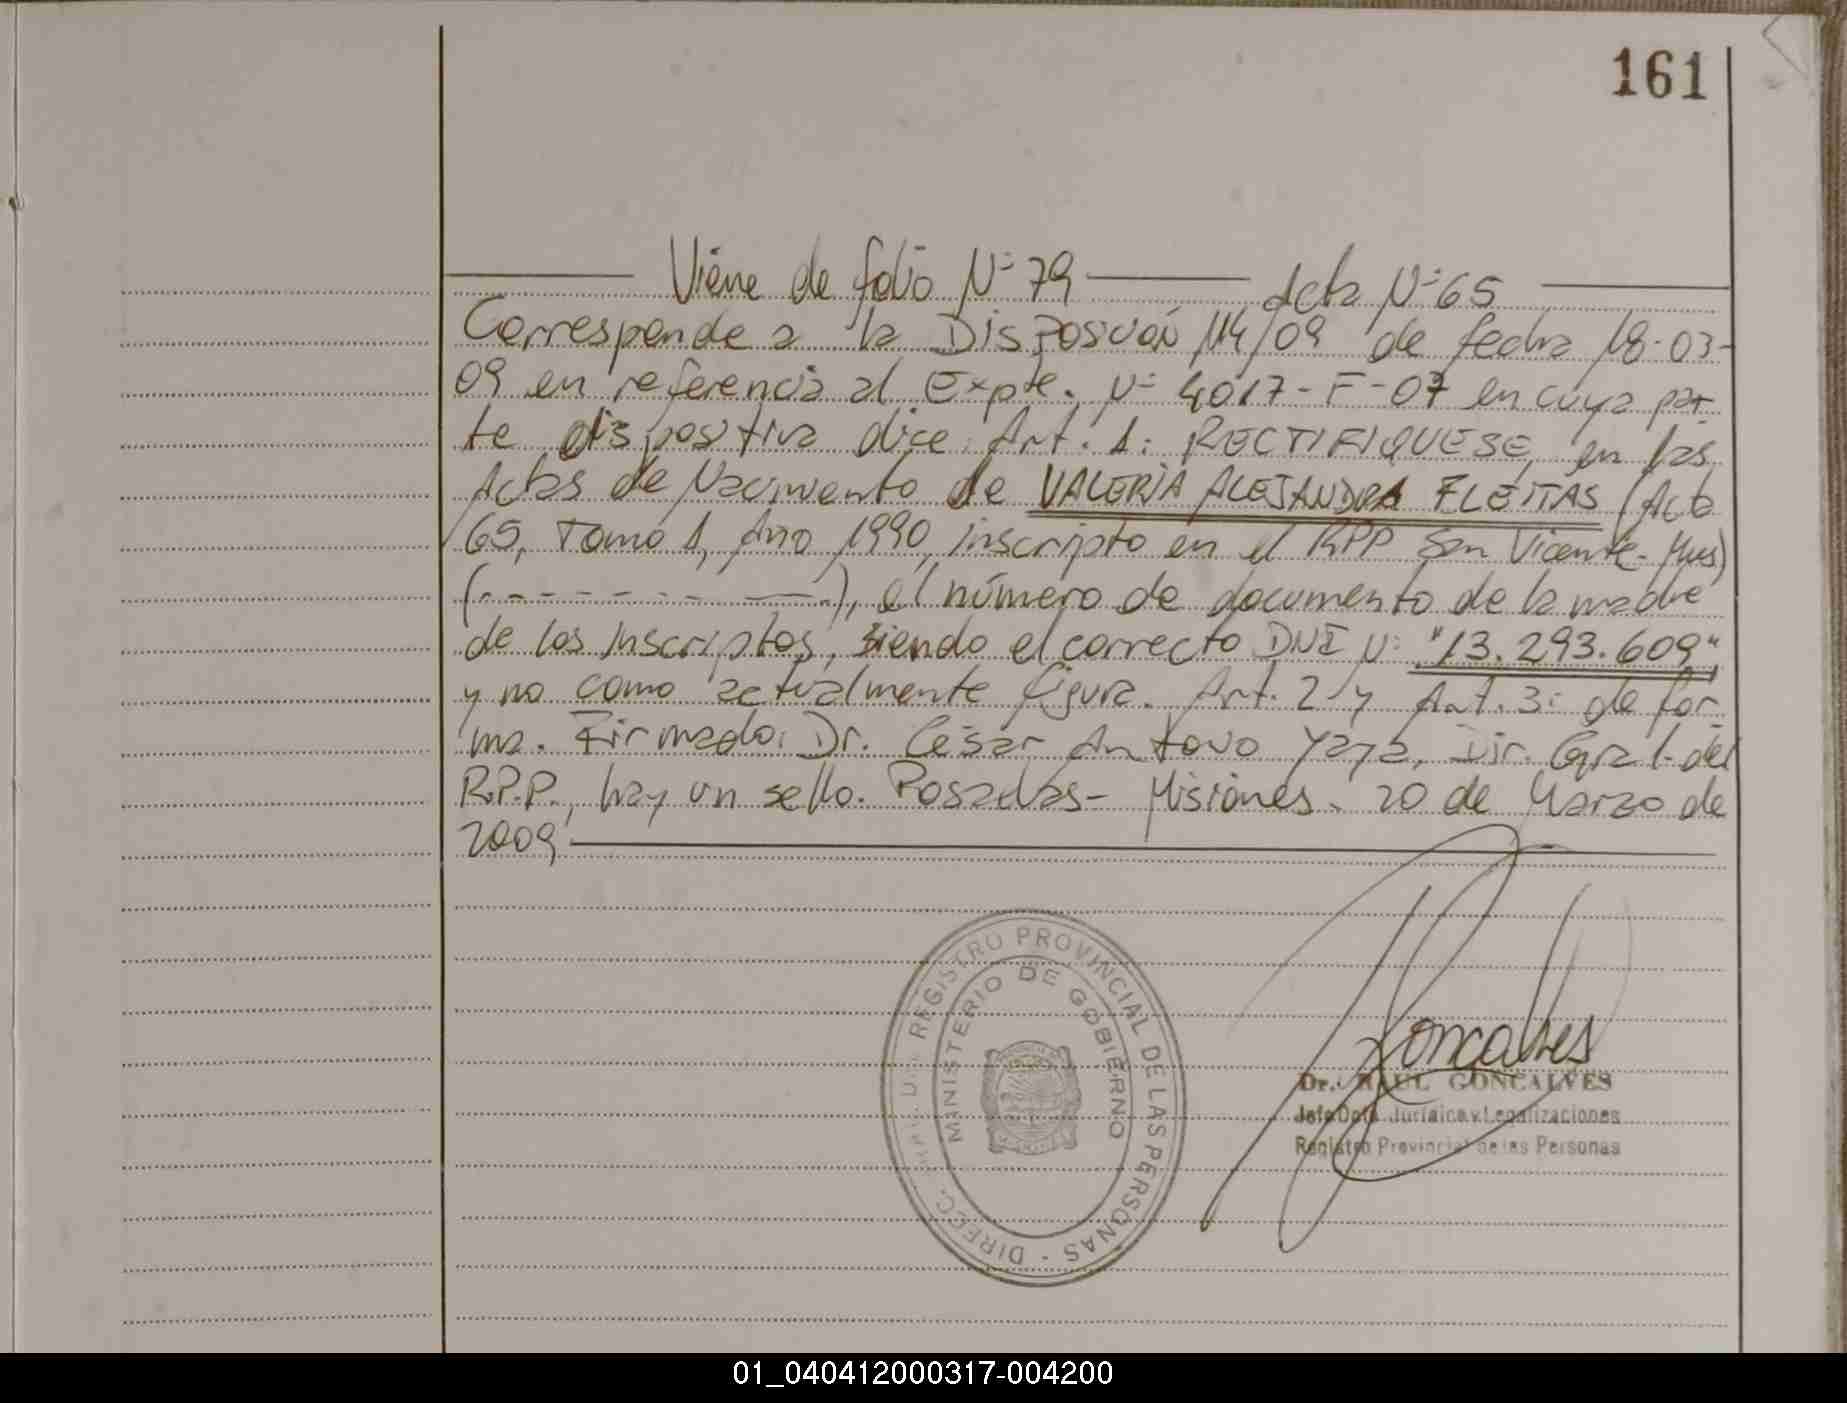 161
Viene de folio Nº 79 — Acta Nº 65
Corresponde a la Disposición 114/09 de fecha 18-03-
09 en referencia al Expte. Nº 4017-F-07 en cuya par-
te dispositiva dice: Art. 1: RECTIFIQUESE, en las
Actas de Nacimiento de VALERIA ALEJANDRA FLEITAS (Acta
65, Tomo 1, Año 1990, inscripto en el RPP San Vicente-Mnes)
(- - - - - - - —), el número de documento de la madre
de los inscriptos, siendo el correcto DNI Nº "13.293.609"
y no como actualmente figura. Art. 2 y Art. 3: de for-
ma. Firmado: Dr. César Antonio Yaya, Dir. Gral. del
R.P.P., hay un sello. Posadas- Misiones. 20 de Marzo de
2009
DIREC. GRAL. DEL REGISTRO PROVINCIAL DE LAS PERSONAS
MINISTERIO DE GOBIERNO
Goncalves
Dr. RAUL GONCALVES
Jefe Dpto. Jurídico y Legalizaciones
Registro Provincial de las Personas
01_040412000317-004200